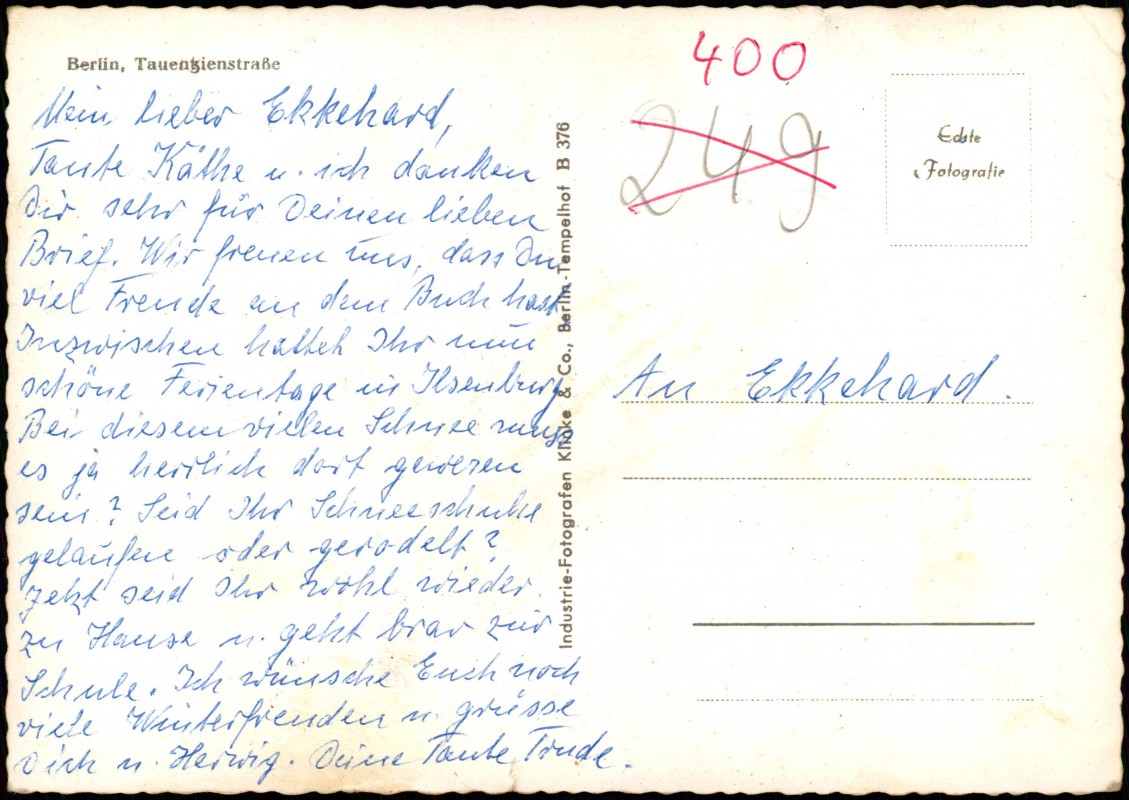 Berlin, Tauentzienstraße
Mein lieber Ekkehard,
Tante Käthe u. ich danken
Dir sehr für Deinen lieben
Brief. Wir freuen uns, dass Du
viel Freude an dem Buch hast.
Inzwischen hattet Ihr nun
schöne Ferientage in Ilsenburg.
Bei diesem vielen Schnee muss
es ja herrlich dort gewesen
sein? Seid Ihr Schneeschuhe
gelaufen oder gerodelt?
Jetzt seid Ihr wohl wieder
zu Hause u. geht brav zur
Schule. Ich wünsche Euch noch
viele Winterfreuden u. grüsse
Dich u. Herwig. Deine Tante Trude.
Industrie-Fotografen Klinke & Co., Berlin-Tempelhof B 376
400
249
Echte
Fotografie
An Ekkehard.